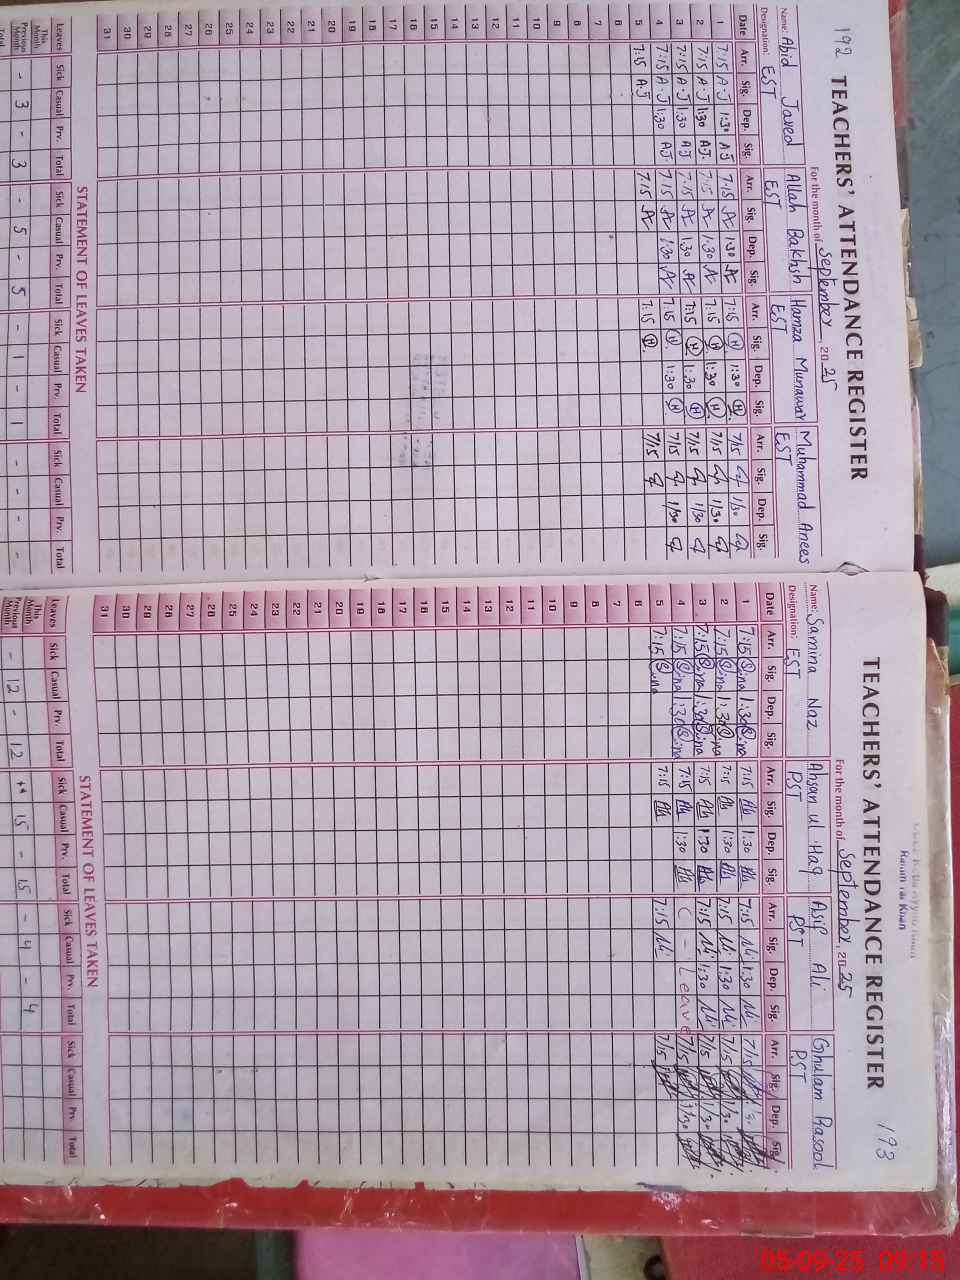 192
TEACHERS' ATTENDANCE REGISTER
For the month of September, 2025
Name: Abid Javed Allah Bakhsh Hamza Munawar Muhammad Anees
Designation: EST EST EST EST
Date Arr. Sig. Dep. Sig. Arr. Sig. Dep. Sig. Arr. Sig. Dep. Sig. Arr. Sig. Dep. Sig.
1 7:15 A.J 1:30 A.J 7:15 1:30 7:15 H 1:30 H 7/15 1/30
2 7:15 A.J 1:30 A.J. 7:15 1:30 7:15 H 1:30 H 7/15 1/30
3 7:15 A.J 1:30 A.J 7:15 1:30 7:15 H 1:30 H 7/15 1/30
4 7:15 A.J 1:30 A.J. 7:15 1:30 7:15 H 1:30 H 7/15 1/30
5 7:15 A.J 7:15 7:15 H 7/15
6
7
8
9
10
11
12
13
14
15
16
17
18
19
20
21
22
23
24
25
26
27
28
29
30
31
STATEMENT OF LEAVES TAKEN
Leaves Sick Casual Prv. Total Sick Casual Prv. Total Sick Casual Prv. Total Sick Casual Prv. Total
This Month
Previous Month - 3 - 3 - 5 - 5 - 1 - 1 - - - -
Total
Rahim Yar Khan
193
TEACHERS' ATTENDANCE REGISTER
For the month of September, 2025
Name: Samina Naz Ahsan ul Haq Asif Ali Ghulam Rasool
Designation: EST PST PST PST
Date Arr. Sig. Dep. Sig. Arr. Sig. Dep. Sig. Arr. Sig. Dep. Sig. Arr. Sig. Dep. Sig.
1 7:15 Sina 1:30 Sina 7:15 Ah 1:30 Ah 7:15 1:30 7/15
2 7:15 Sina 1:30 Sina 7:15 Ah 1:30 Ah 7:15 1:30 7/15 1/30
3 7:15 Sina 1:30 Sina 7:15 Ah 1:30 Ah 7:15 1:30 7/15 1/30
4 7:15 Sina 1:30 Sina 7:15 Ah 1:30 Ah ( - Leave 7/15 1/30
5 7:15 Sina 7:15 Ah 7:15 7/15
6
7
8
9
10
11
12
13
14
15
16
17
18
19
20
21
22
23
24
25
26
27
28
29
30
31
STATEMENT OF LEAVES TAKEN
Leaves Sick Casual Prv. Total Sick Casual Prv. Total Sick Casual Prv. Total Sick Casual Prv. Total
This Month
Previous Month - 12 - 12 15 - 15 - 4 - 4
05-09-25 09:15